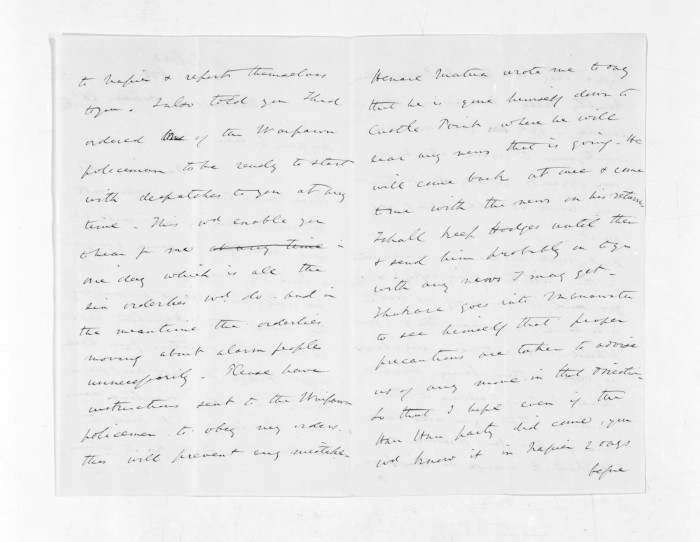 to Napier & report themselves
to you. I also told you I had
ordered one of the Waipawa
policemen to be ready to start
with despatches to you at any
time. This wd enable you
to hear fr me at any time in
one day which is all the
six orderlies wd do. and in
the meantime the orderlies
moving about alarm people
unnecessarily. Please have
instructions sent to the Waipawa
policemen to obey my orders.
this will prevent any mistake
Henare Matua wrote me today
that he is gone himself down to
Castle Point, where he will
hear any news that is going. He
will come back at once & come
to me with the news on his return
I shall keep Hodges until then
& send him probably on to you
with any news I may get.
goes into Manawatu
to see himself that proper
precautions are taken to advise
us of any move in that direction
So that I hope even if the
Hau Hau party did come, you
wd know it in Napier 2 days
before